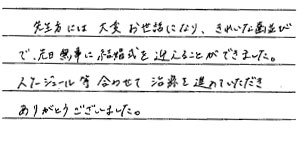 先生方には大変お世話になり、きれいな歯並び
で、先日無事に結婚式を迎えることができました。
スケジュール等 合わせて 治療を進めていただき
ありがとうございました。